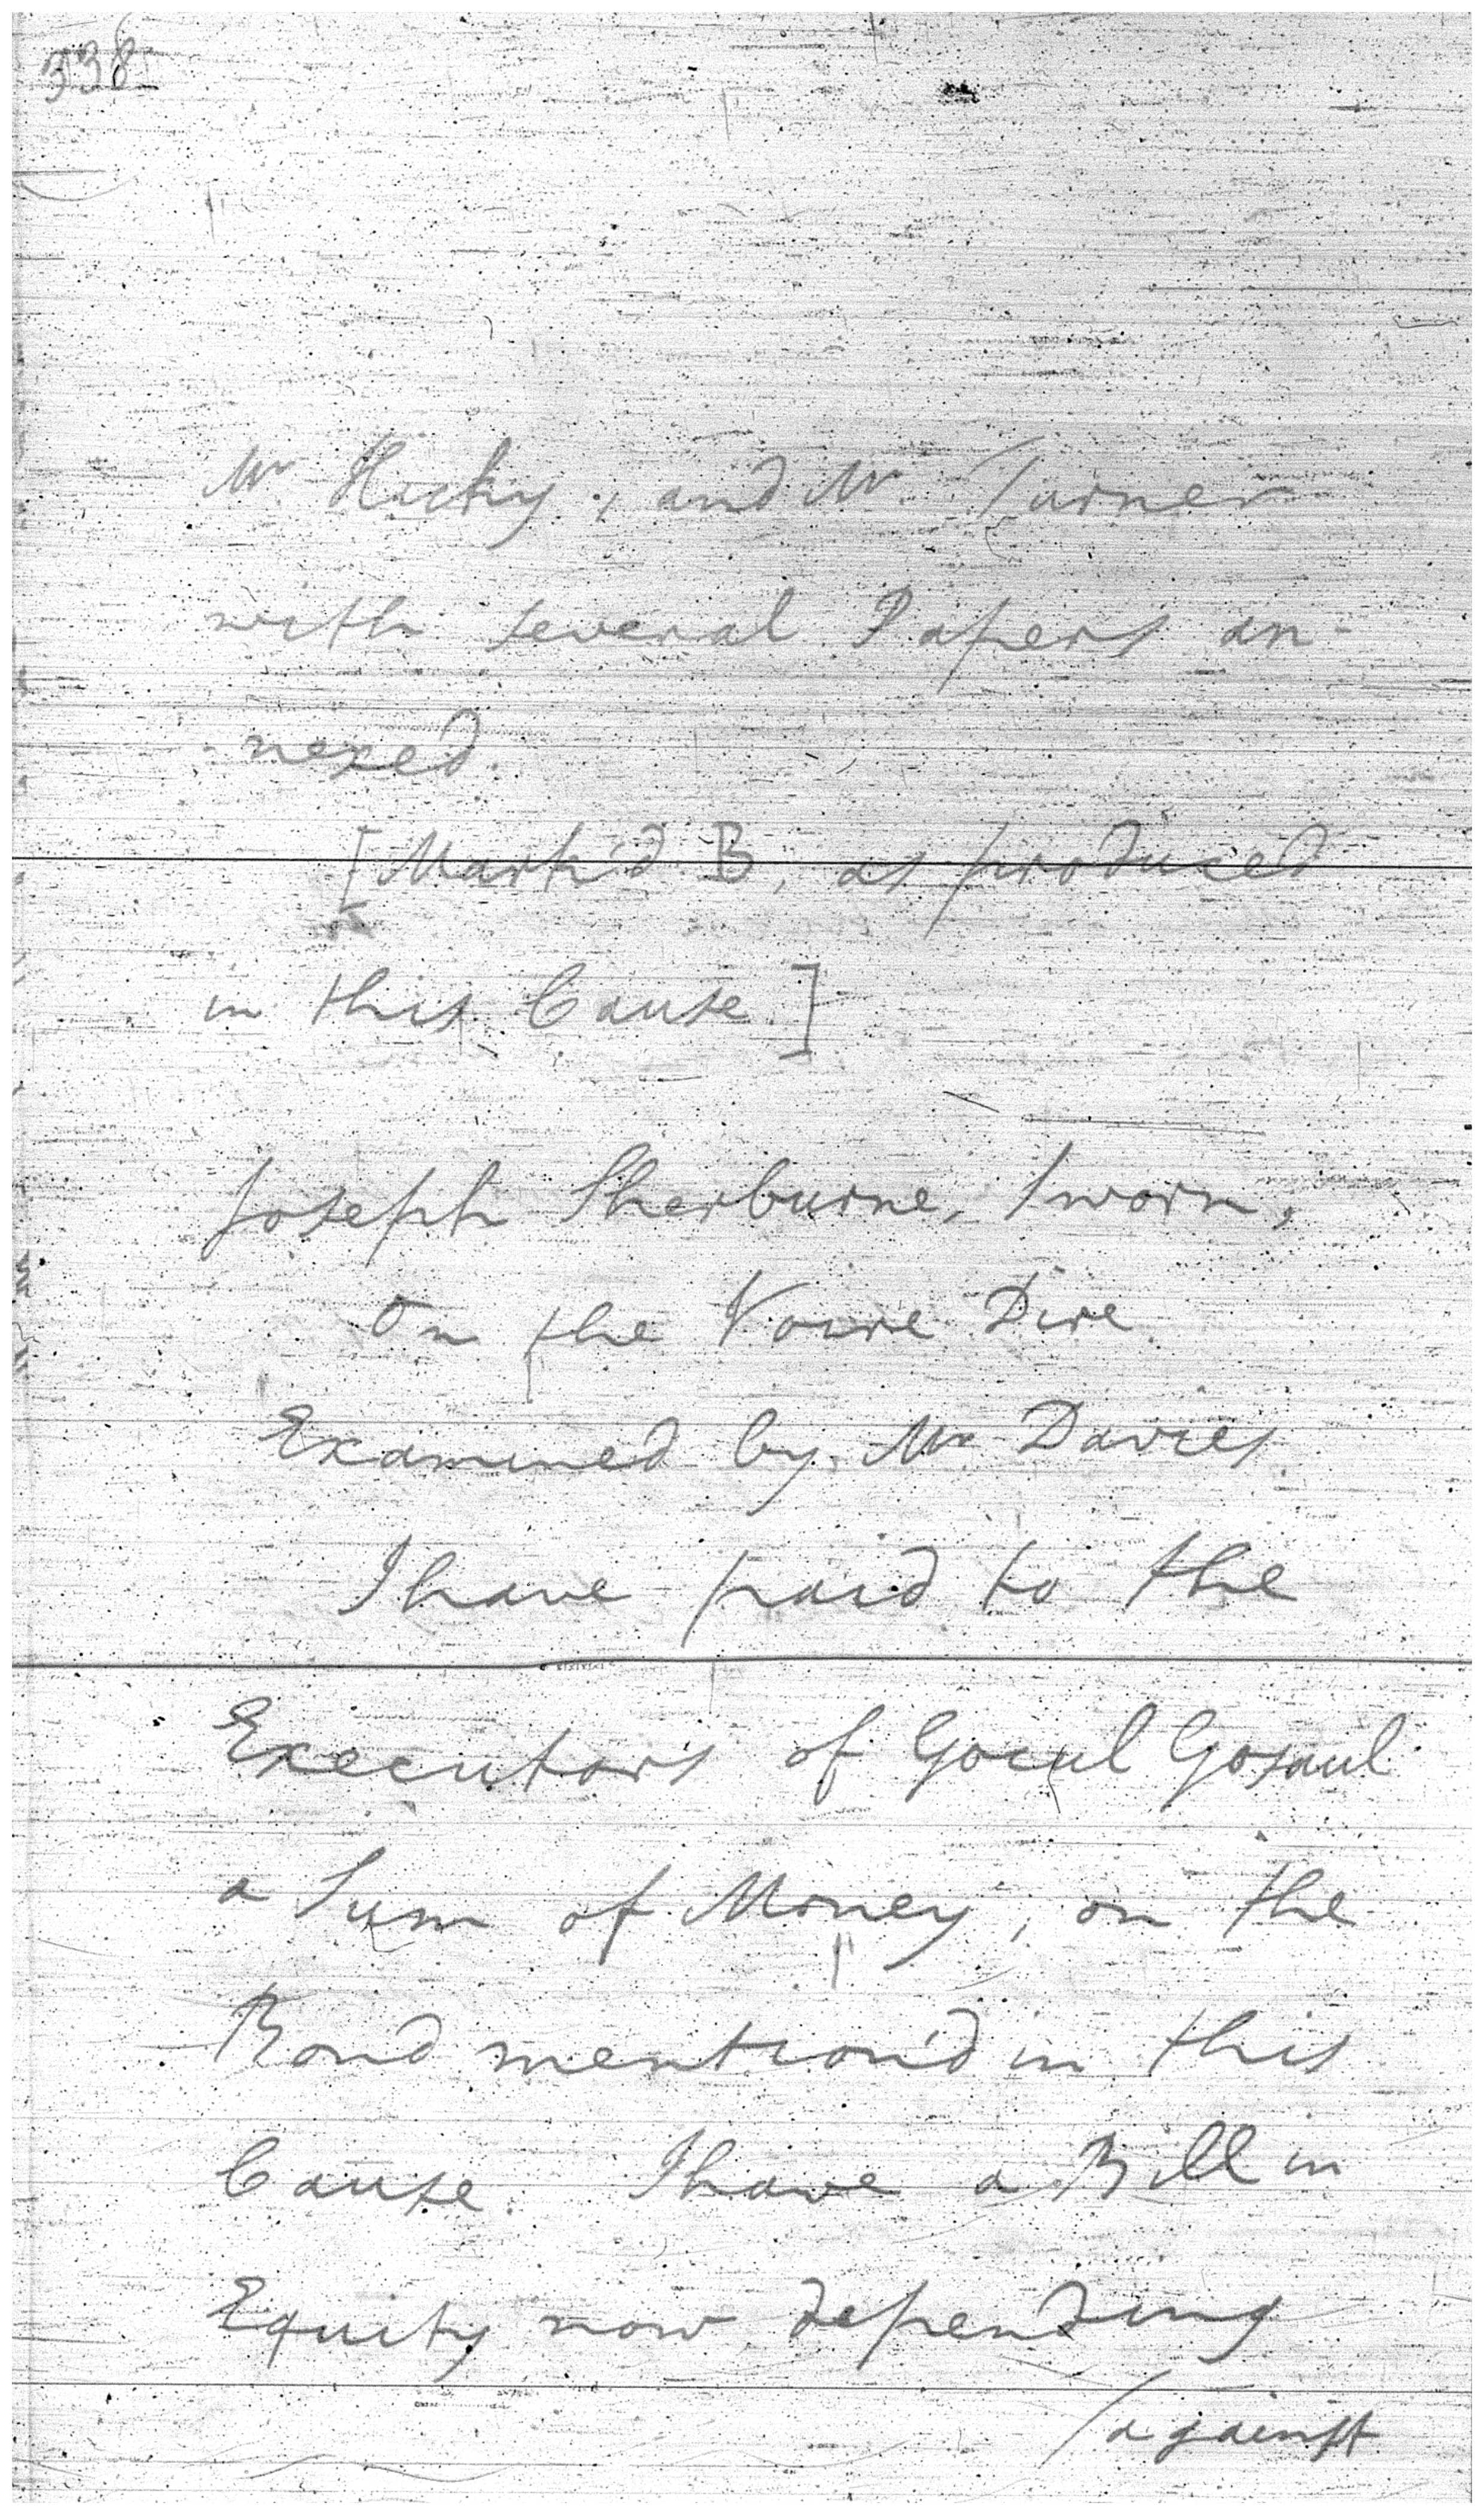 338
Mr Hicky, and Mr Turner
with several Papers an-
-nexed.
[Mark'd B, as produced
in this Cause]
Joseph Sherburne, Sworn,
On the Voire Dire
Examined by Mr Davies.
I have paid to the
Executors of Gocul Gosaul
a Sum of Money, on the
Bond mention'd in this
Cause. I have a Bill in
Equity now depending
/against